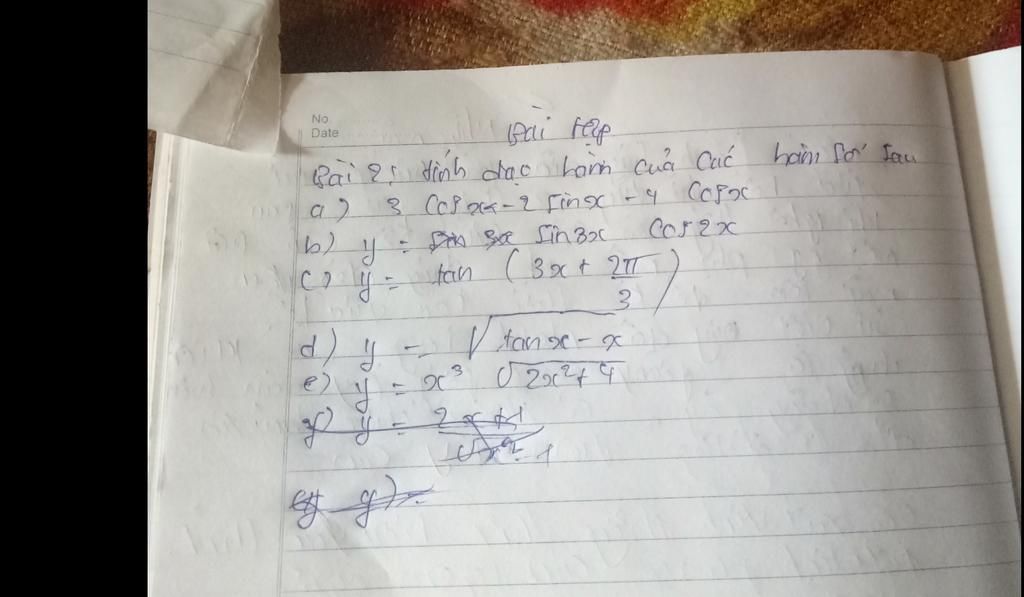 No
Date
Bài tập
Bài 2: tính đạo hàm của các hàm số sau
a) 3 cosx - 2 sinx - 4 cosx
b) y = sin 3x sin3x cos2x
c) y = tan (3x + 2π/3)
d) y = √tanx - x
e) y = x³ √2x²+4
g) y = 2x+1/√x²-1
g) =